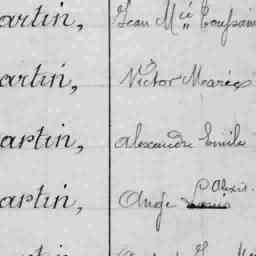 artin, Jean M ié Toussain
artin, Victor Marie
artin, Alexandre Emile
artin, Ange Alexis
artin,